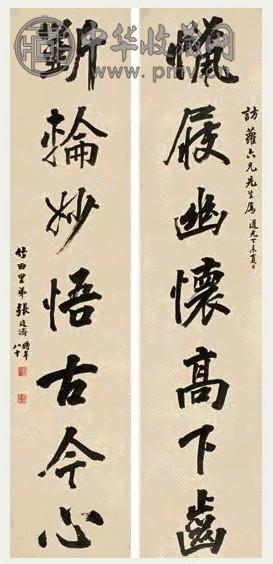 中华收藏网
www.pmv.cn
訪蘿六兄先生屬 道光丁未夏日
蠟屐幽懷高下齒
斲輪妙悟古今心
竹田里弟張廷濟時年八十